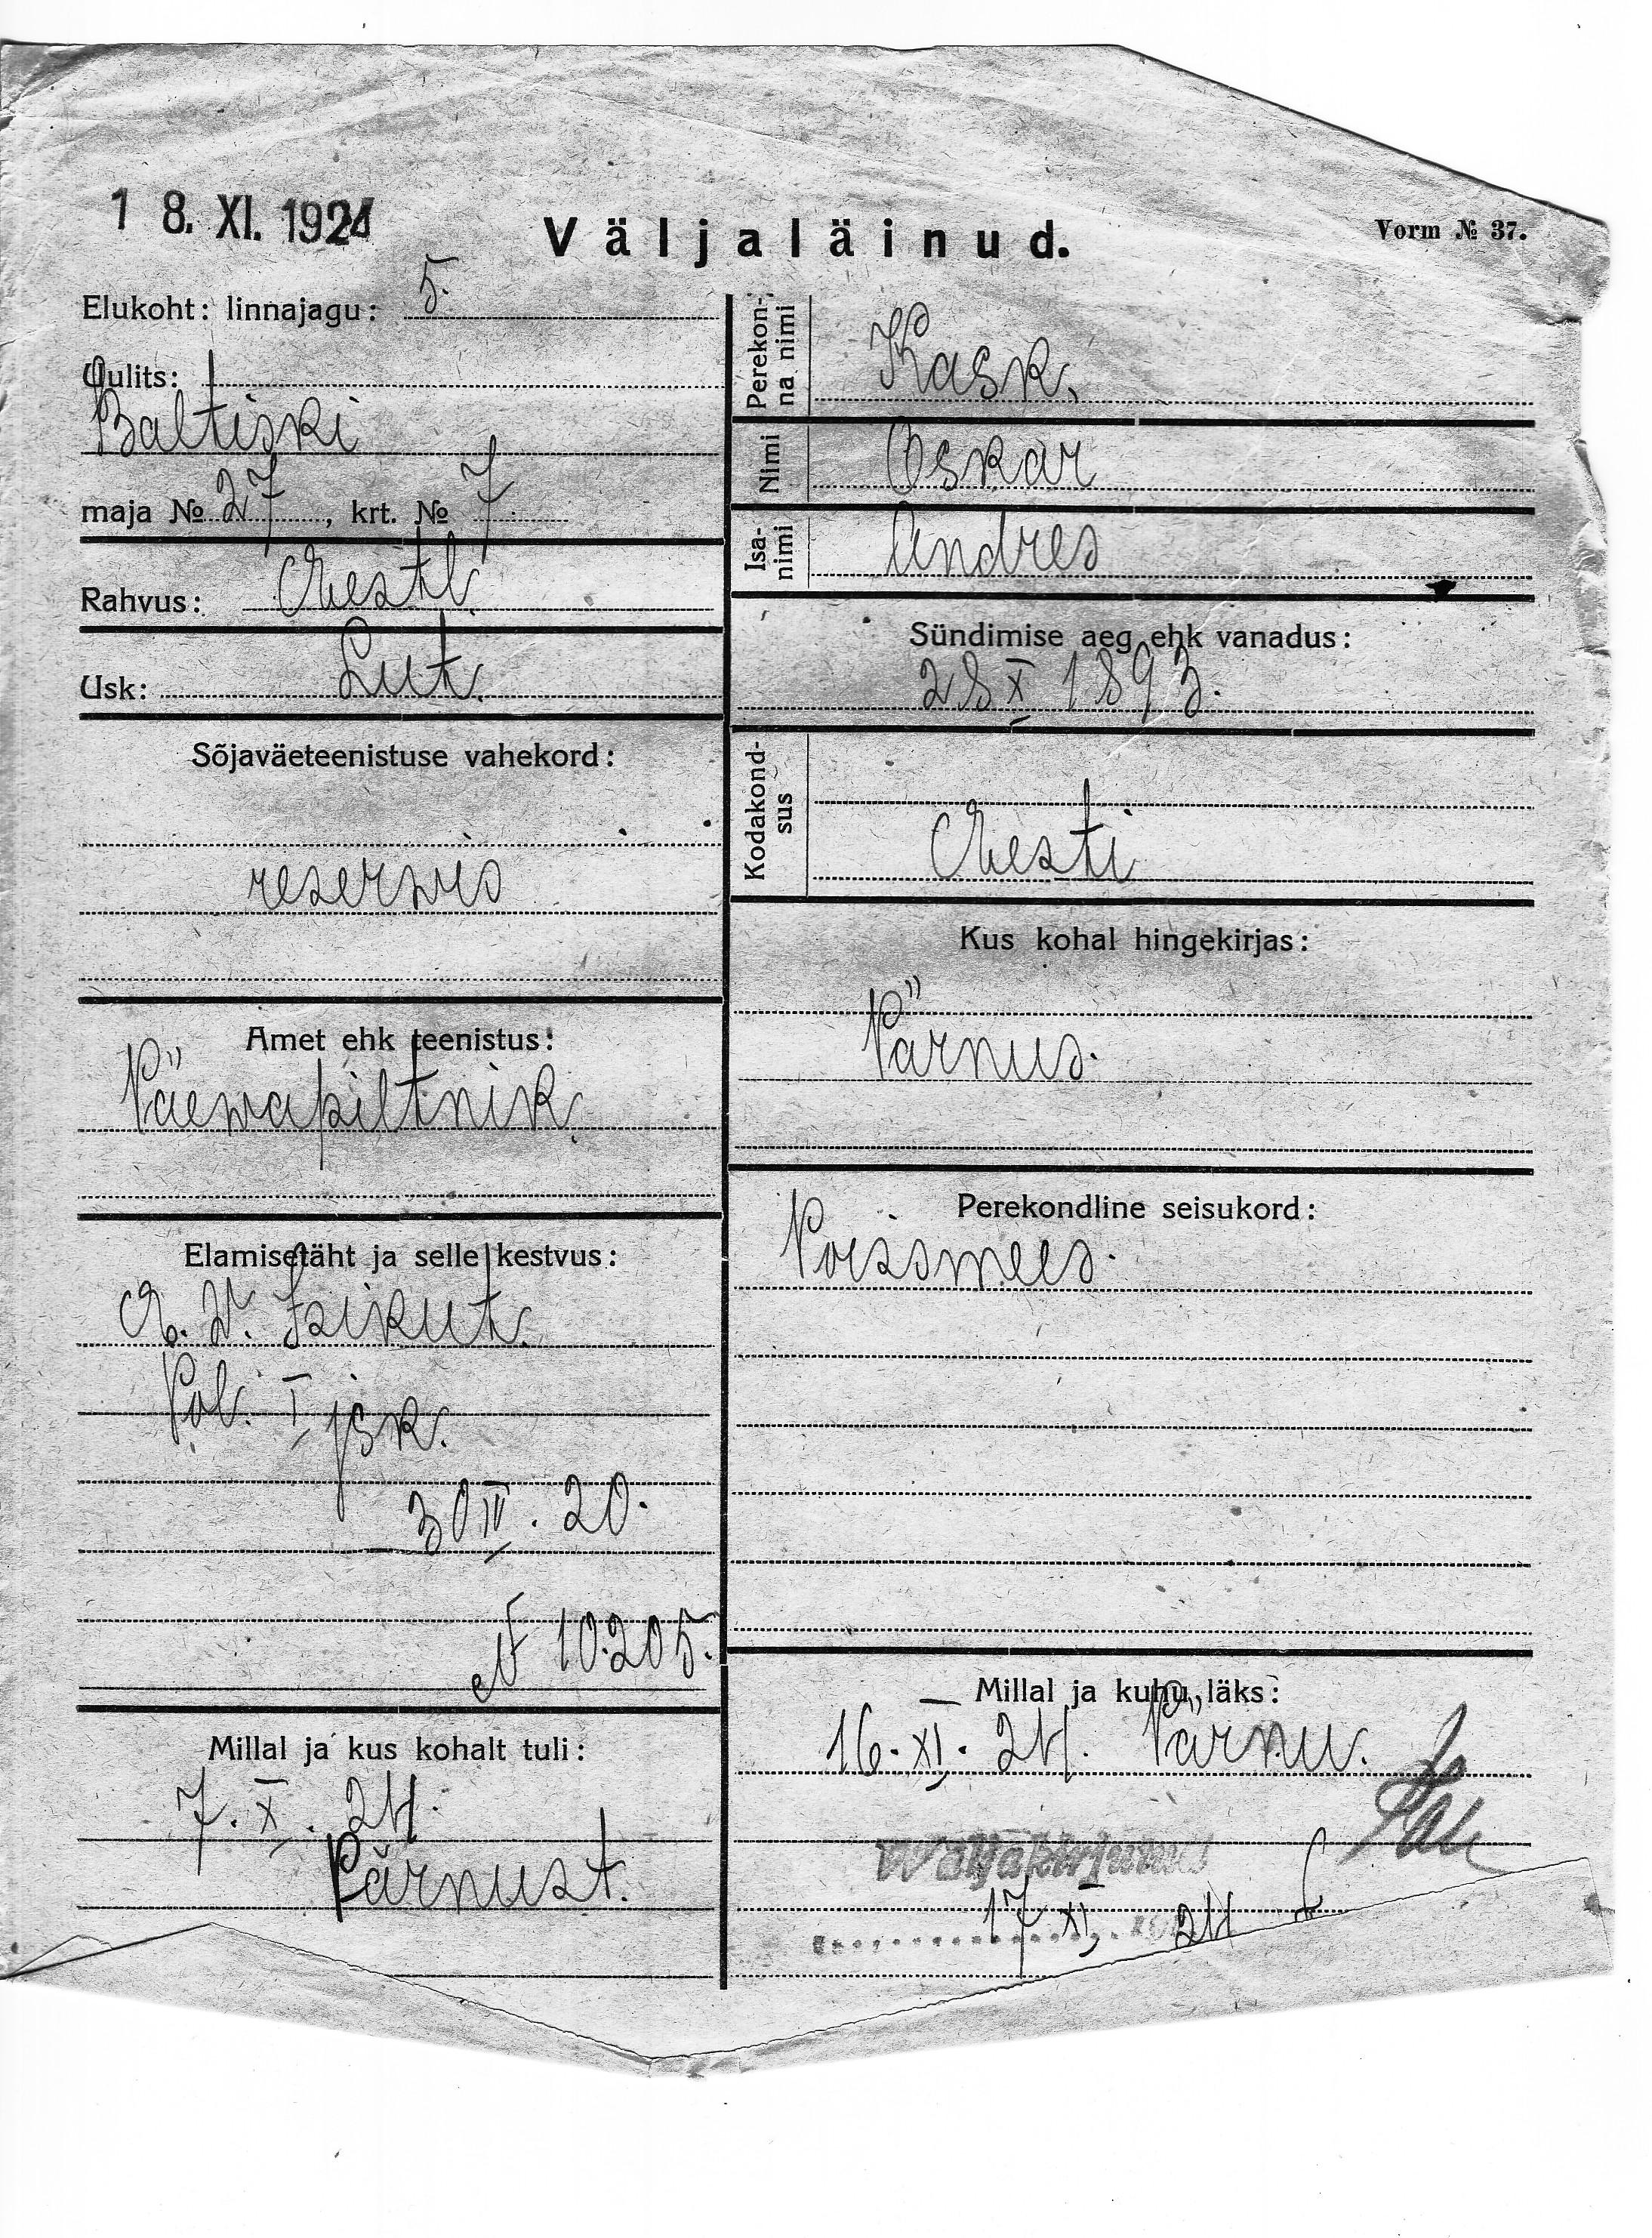 18. XI. 1924
Väljaläinud.
Vorm № 37.
Elukoht: linnajagu: 5.
Uulits:
Baltiski
maja № 27, krt. № 7
Rahvus: Eestl.
Usk: Lut.
Sõjaväeteenistuse vahekord:
reserwis
Amet ehk teenistus:
Päewapiltnik.
Elamisetäht ja selle kestvus:
E. W. Isikut.
Pol. I jsk.
30 IV. 20.
N 10205.
Millal ja kus kohalt tuli:
7. X. 24.
Pärnust.
Perekon-
na nimi
Kask.
Nimi
Oskar
Isa-
nimi
Andres
Sündimise aeg ehk vanadus:
28 X 1893.
Kodakond-
sus
Eesti
Kus kohal hingekirjas:
Pärnus.
Perekondline seisukord:
Poissmees.
Millal ja kuhu läks:
16. XI. 24. Pärnu.
Wäljakirjutud
17 XI 24